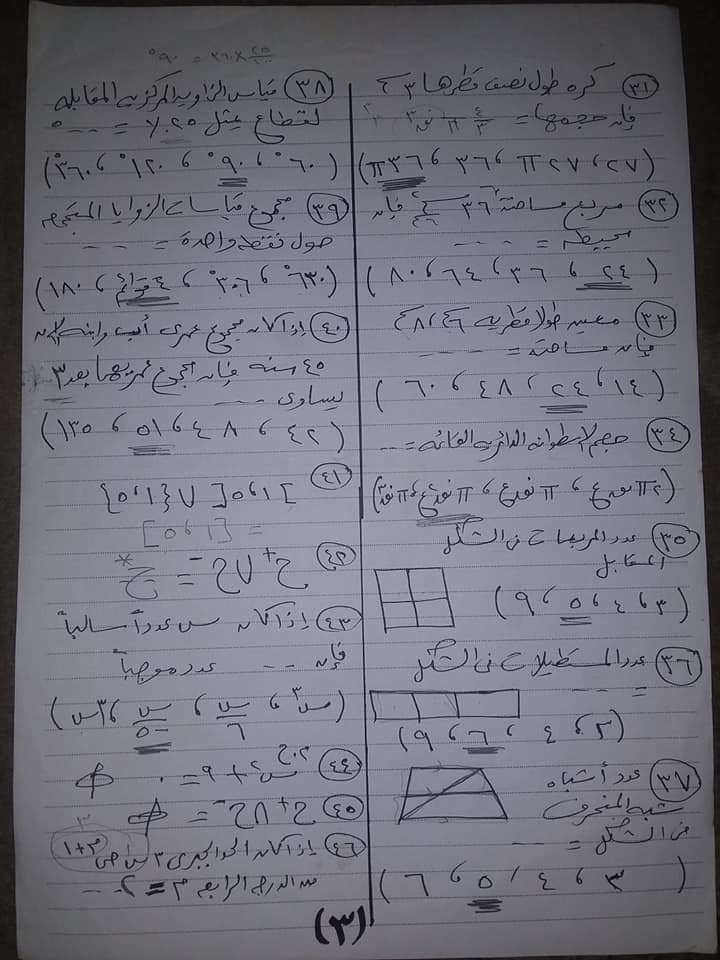 ٢٥/١٠٠ × ٣٦٠ = ٩٠°
٣١ كره طول نصف قطرها ٣ سم
فإن حجمها = ٤/٣ π نق٣
(٢٧ ، ٢٧ π ، ٣٦ ، ٣٦ π)
٣٢ مربع مساحته ٣٦ سم٢ فإن
محيطه = ----
(٢٤ ، ٣٦ ، ٦٤ ، ٨٠)
٣٣ معين طولا قطريه ٦سم ، ٨سم
فإن مساحته = ----
(١٤ ، ٢٤ ، ٤٨ ، ٦٠)
٣٤ حجم الاسطوانه الدائريه القائمه = ---
(٢π نق ع ، π نق ع ، π نق٢ ع ، π نق٣)
٣٥ عدد المربعات فى الشكل
المقابل
(٣ ، ٤ ، ٥ ، ٩)
٣٦ عدد المستطيلات فى الشكل
= ----
(٣ ، ٤ ، ٦ ، ٩)
٣٧ عدد أشباه
شبه المنحرف
فى الشكل = ---
(٣ ، ٤ ، ٥ ، ٦)
٣٨ قياس الزاويه المركزيه المقابله
لقطاع يمثل ٢٥٪ = ---°
(٦٠° ، ٩٠° ، ١٢٠° ، ٣٦٠°)
٣٩ مجموع قياسات الزوايا المتجمعه
حول نقطه واحدة = ----
(٦٣٠° ، ٣٠٦° ، ٤ قوائم ، ١٨٠)
٤٠ إذا كان مجموع عمرى أب وابنه الان
٤٥ سنه فإن مجموع عمريهما بعد ٣
يساوى ----
(٤٢ ، ٤٨ ، ٥١ ، ١٣٥)
٤١ ]١ ، ٥[ U {١ ، ٥}
= [١ ، ٥]
٤٢ ح+ U ح- = ح*
٤٣ إذا كان س عدداً سالباً
فإن --- عدد موجباً
(س٣ ، س/٦ ، س/-٥ ، ٣س)
٤٤ م.ح س٢ + ٩ = ٠ ∅
٤٥ ح+ ∩ ح- = ∅
٤٦ إذا كان الحد الجبرى ٣ س ص م+١
من الدرجه الرابعه م = ٢ --
(٣)